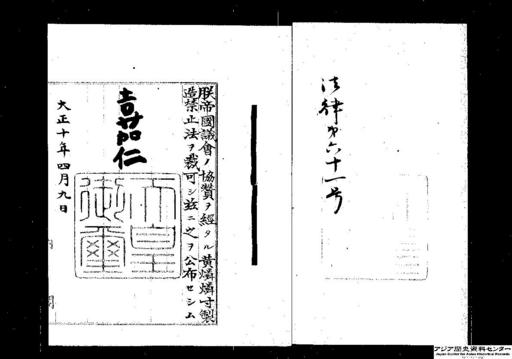 法律第六十一号
朕帝國議會ノ協贊ヲ經タル黄燐燐寸製
造禁止法ヲ裁可シ茲ニ之ヲ公布セシム
嘉仁
天皇御璽
大正十年四月九日
アジア歴史資料センター
Japan Center for Asian Historical Records